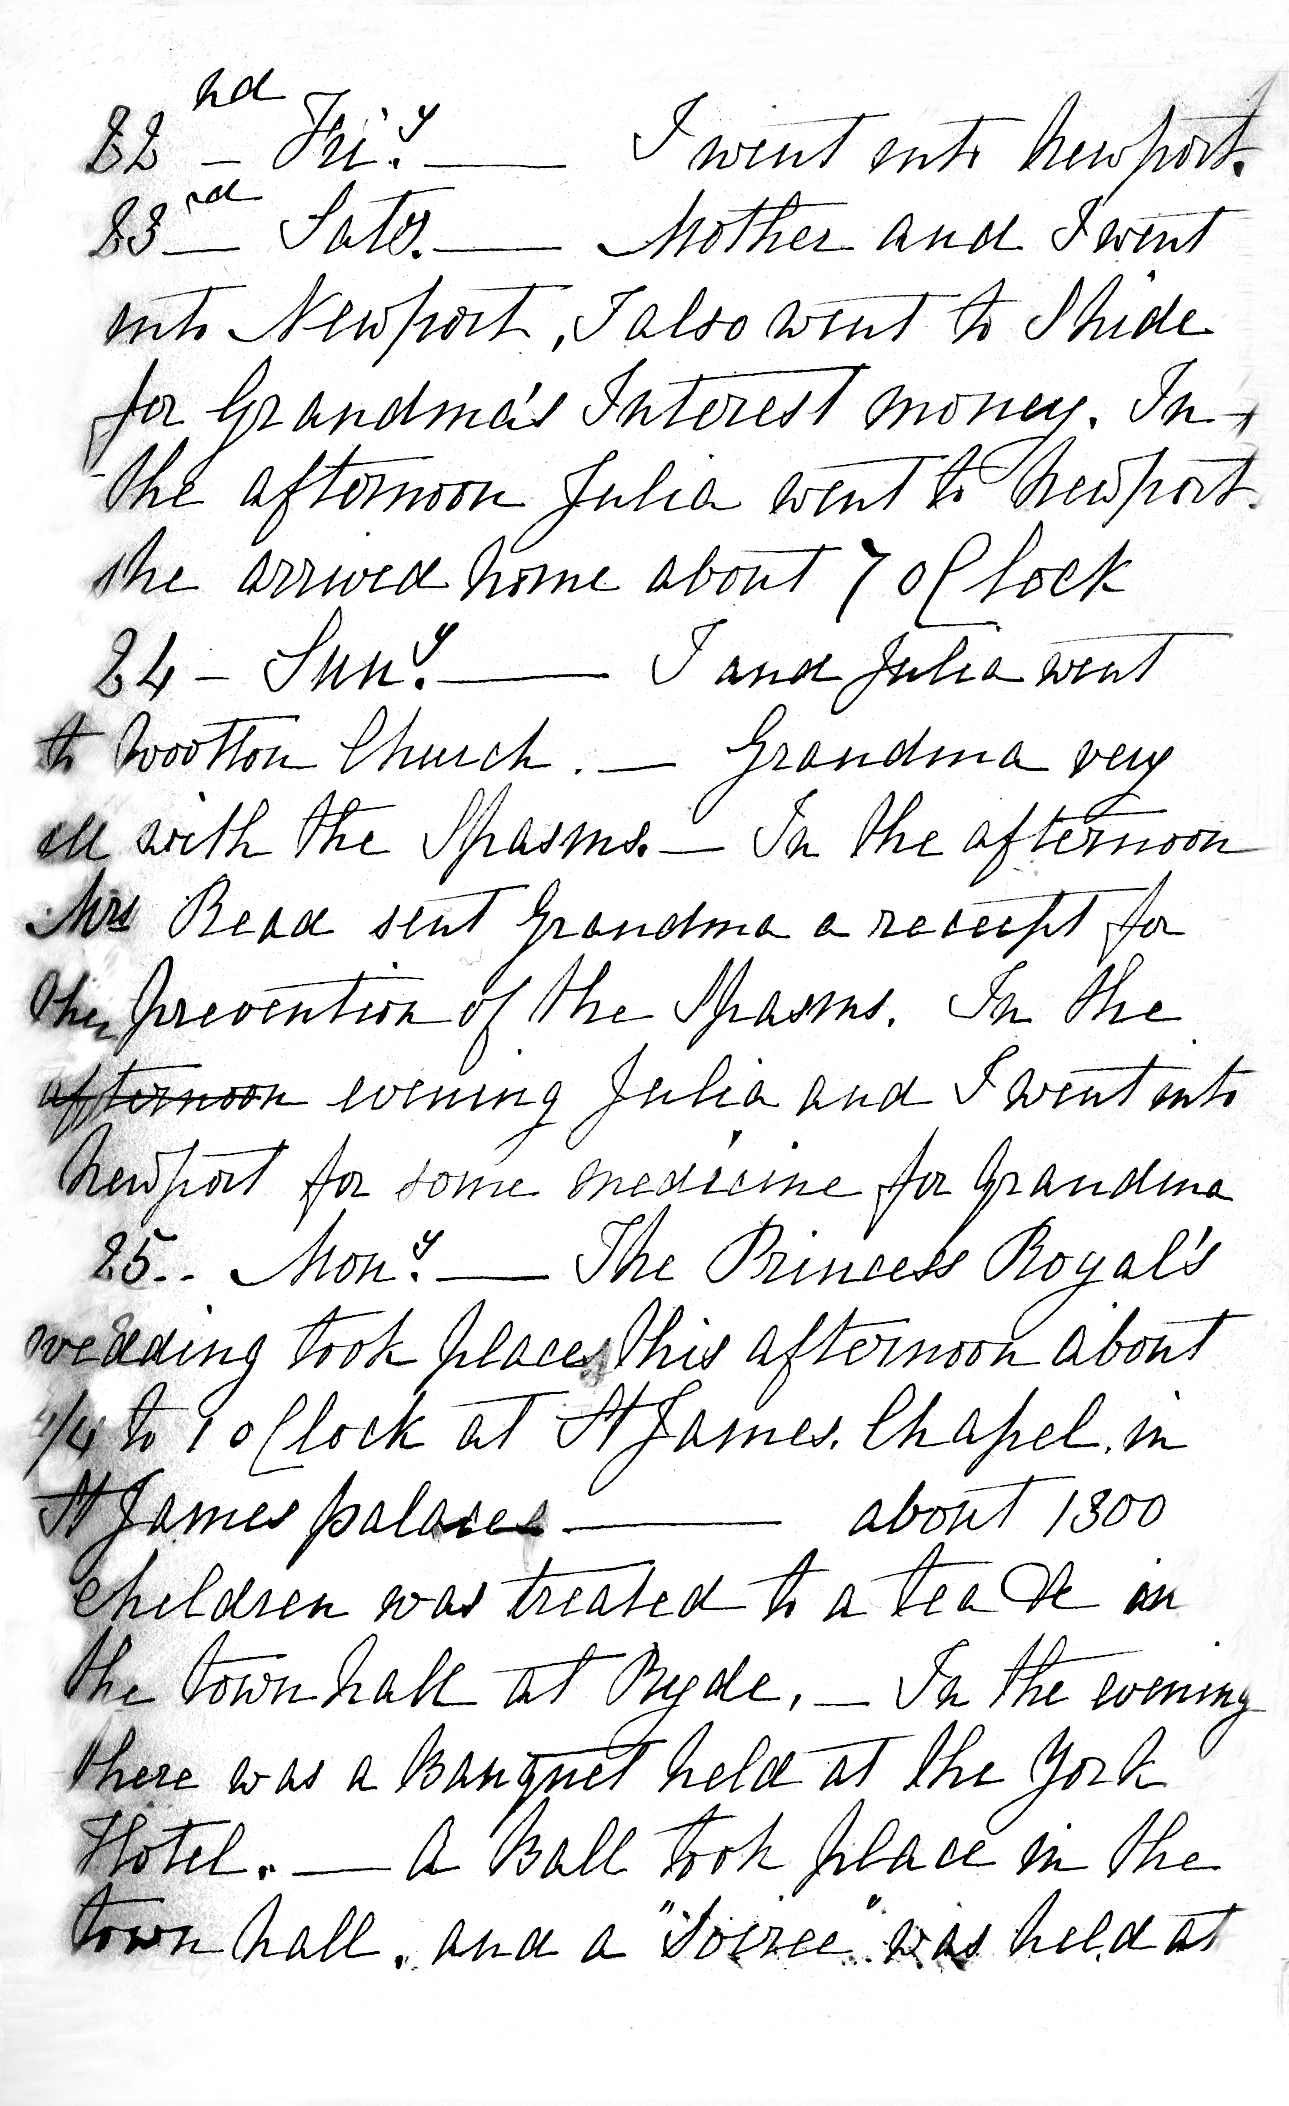 22nd – Fri.y —— I went into Newport.
23rd – Saty. —— Mother and I went
into Newport, I also went to Shide
for Grandma's Interest money. In
the afternoon Julia went to Newport.
she arrived home about 7 oClock
24 – Sun.y —— I and Julia went
to Wootton Church. — Grandma very
ill with the Spasms. — In the afternoon
Mrs Read sent Grandma a receipt for
the prevention of the Spasms. In the
afternoon evening Julia and I went into
Newport for some medicine for Grandma
25.. Mon.y —— The Princess Royal's
wedding took place this afternoon about
1/4 to 1 oClock at St James. Chapel. in
St James palace —— about 1300
children was treated to a tea &c in
the town hall at Ryde. — In the evening
there was a Banquet held at the York
Hotel. —— A Ball took place in the
town hall. and a "Soiree" was held at